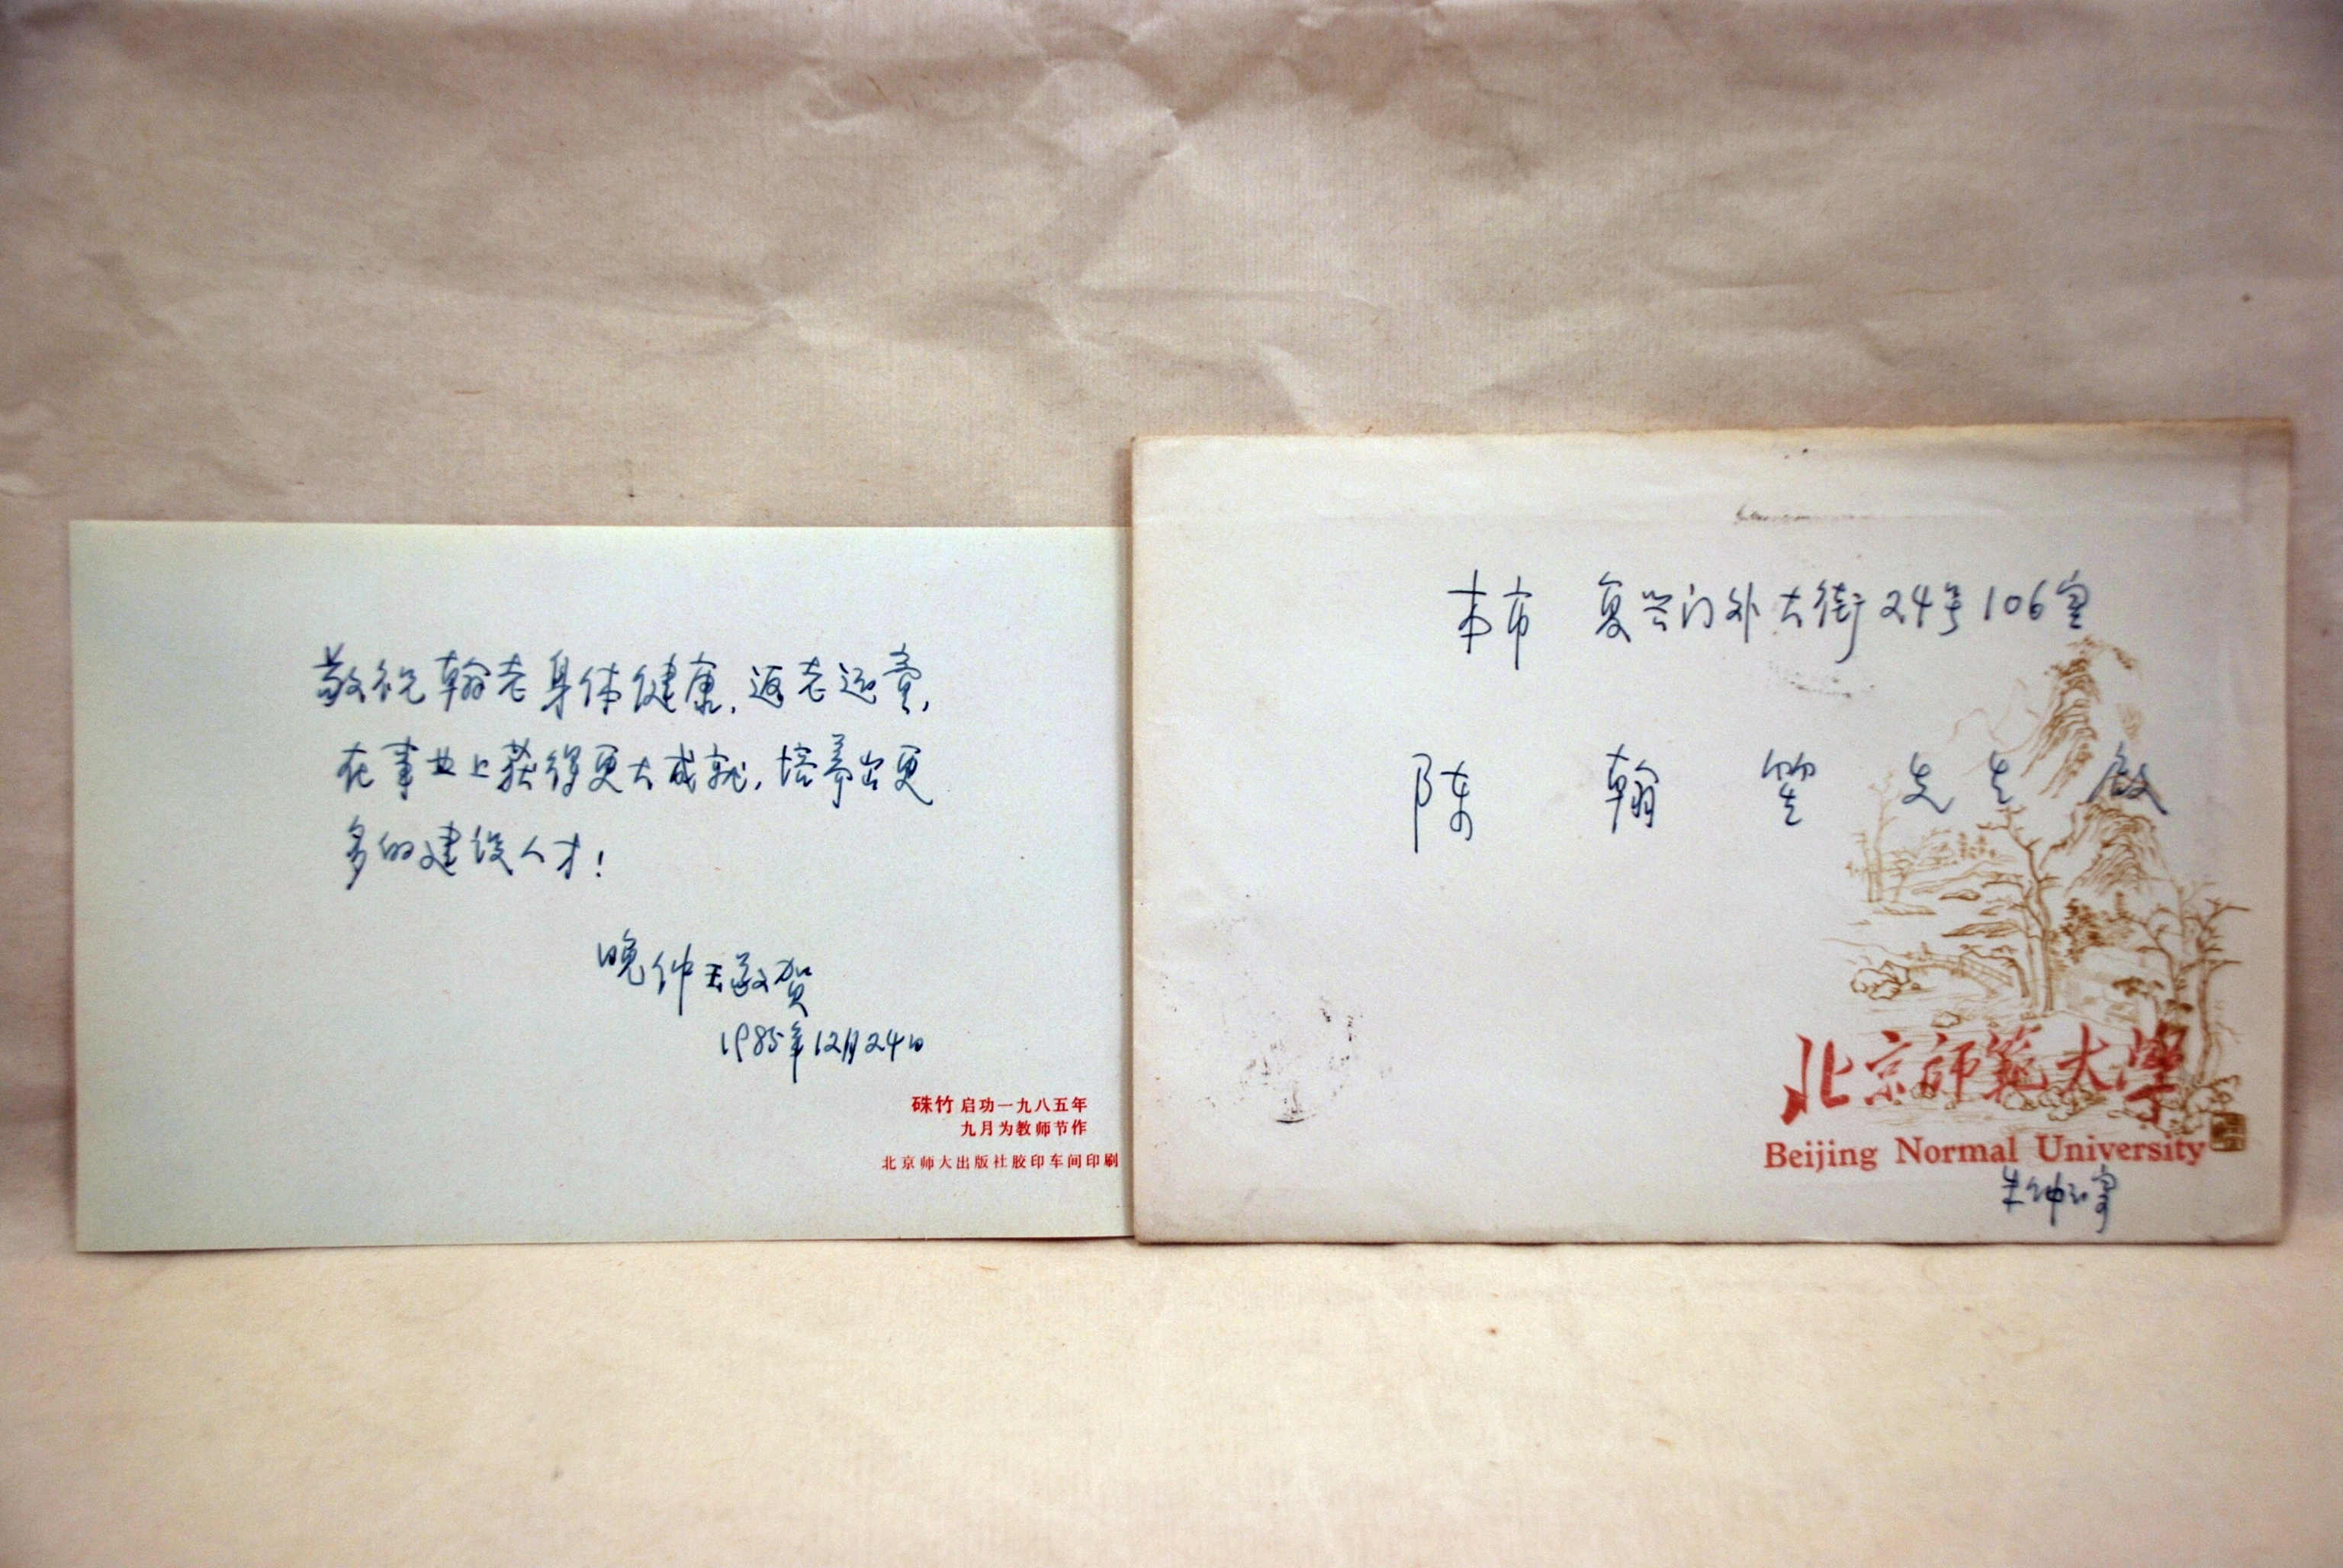 敬祝翰老身体健康，返老还童，
在事业上获得更大成就，培养出更
多的建设人才！
晚仲玉敬贺
1985年12月24日
硃竹 启功一九八五年
九月为教师节作
北京师大出版社胶印车间印刷
本市 复兴门外大街24号106室
陈 翰 笙 先 生 启
北京师范大学
Beijing Normal University
朱仲玉寄